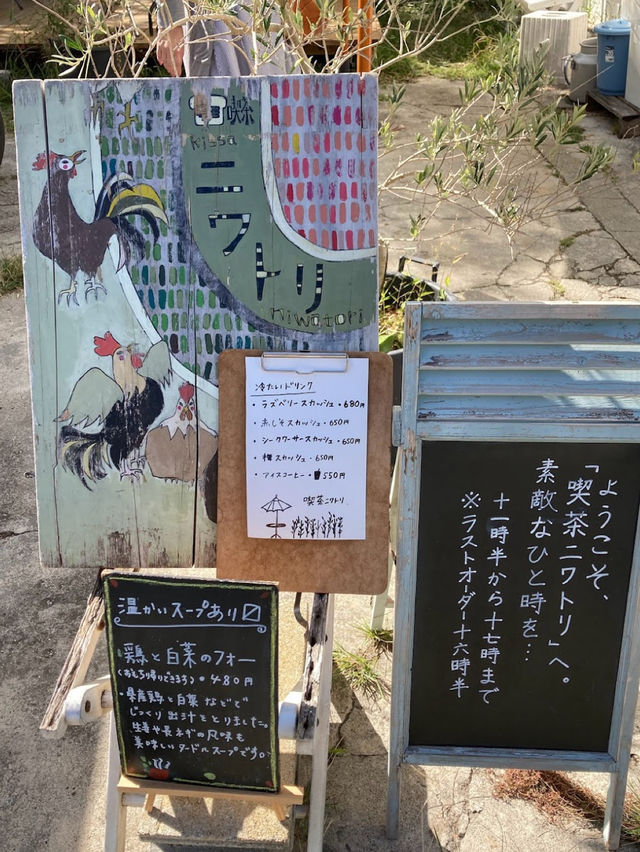 喫茶
kissa
ニワトリ
niwatori
冷たいドリンク
・ラズベリースカッシュ・680円
・赤しそスカッシュ・650円
・シークワーサースカッシュ・650円
スカッシュ・650円
・アイスコーヒー・550円
喫茶ニワトリ
ようこそ、
「喫茶ニワトリ」へ。
素敵なひと時を…
十一時半から十七時まで
※ラストオーダー十六時半
温かいスープあり☑
・鶏と白菜のフォー
(おもち帰りできます)・480円
・県産鶏と白菜などで
じっくり出汁をとりました。
生姜や長ネギの風味も
美味しいヌードルスープです。